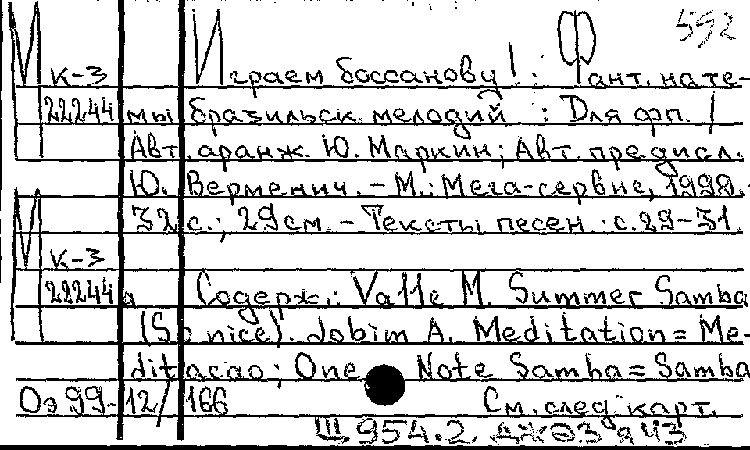 592
М к-3 Играем боссанову! : Фант. на те-
22244 мы бразильск. мелодий : Для фп. /
Авт. аранж. Ю. Маркин; Авт. предисл.
Ю. Верменич. - М.: Мега-сервис, 1998. -
32 с.; 29 см. - Тексты песен: с. 29-31.
М к-3
22244а Содерж.: Valle M. Summer Samba
(So nice). Jobim A. Meditation = Me-
ditacao; One Note Samba = Samba
Оз 99-12/166 См. след. карт.
Щ 954.2 ДЖ ОЗ я ЧЗ